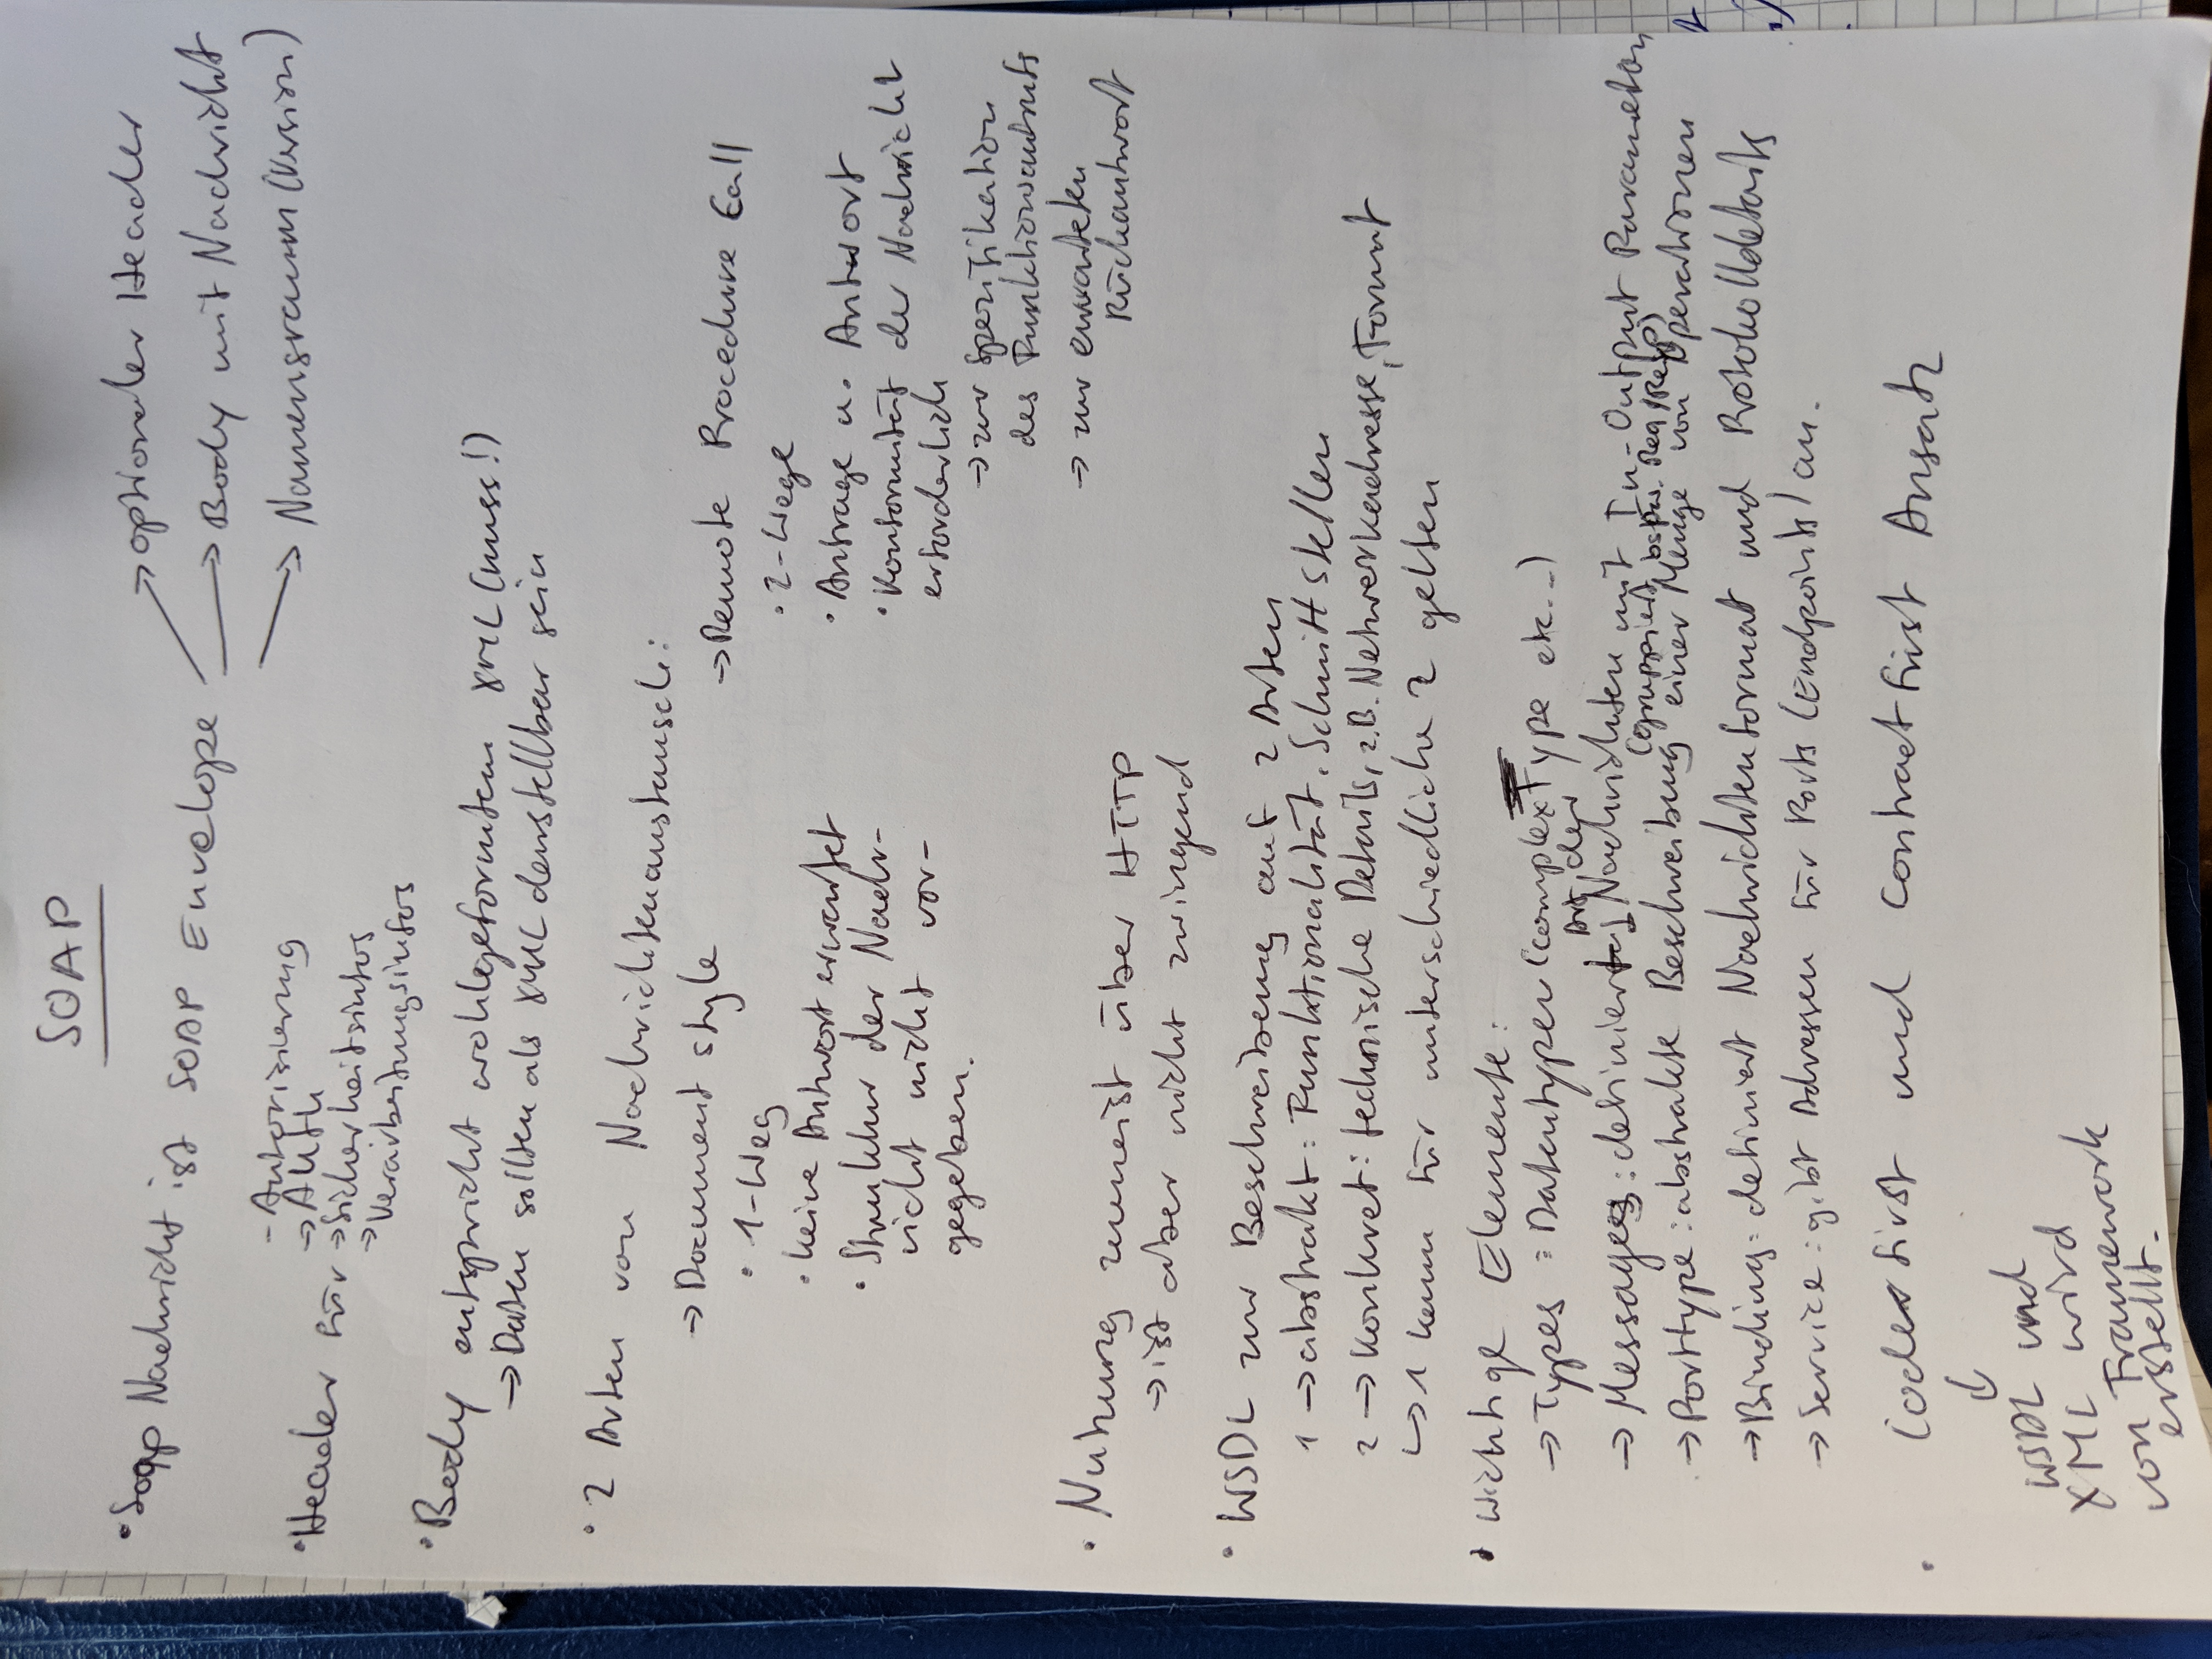 SOAP
• Soap Nachricht ist SOAP Envelope → optionaler Header
→ Body mit Nachricht
→ Namensraum (Version)
• Header für - Autorisierung
→ Auth
→ Sicherheitsinfos
→ Verarbeitungsinfos
• Body entspricht wohlgeformtem XML (muss!)
→ Daten sollten als XML darstellbar sein
• 2 Arten von Nachrichtenaustausch:
→ Document style
• 1-Weg
• keine Antwort erwartet
• Struktur der Nach-
richt nicht vor-
gegeben.
→ Remote Procedure Call
• 2-Wege
• Anfrage u. Antwort
• Konformität der Nachricht
erforderlich
→ zur Spezifikation
des Funktionsaufrufs
→ zur erwarteten
Rückantwort
• Nutzung zumeist über HTTP
→ ist aber nicht zwingend
• WSDL zur Beschreibung auf 2 Arten
1 → abstrakt: Funktionalität, Schnittstellen
2 → konkret: technische Details, z.B. Netzwerkadresse, Format
↳ 1 kann für unterschiedliche 2 gelten
• wichtige Elemente:
→ Types: Datentypen (complexType etc..)
→ Messages: definiert Art der Nachrichten mit In-Output Parametern
→ Porttype: abstrakte Beschreibung einer Menge von Operationen
(gruppiert bspw. Req/Resp)
→ Binding: definiert Nachrichtenformat und Protokolldetails
→ Service: gibt Adressen für Ports (Endpoints) an.
• Code first und Contract first Ansatz
↓
WSDL und
XML wird
von Framework
erstellt.